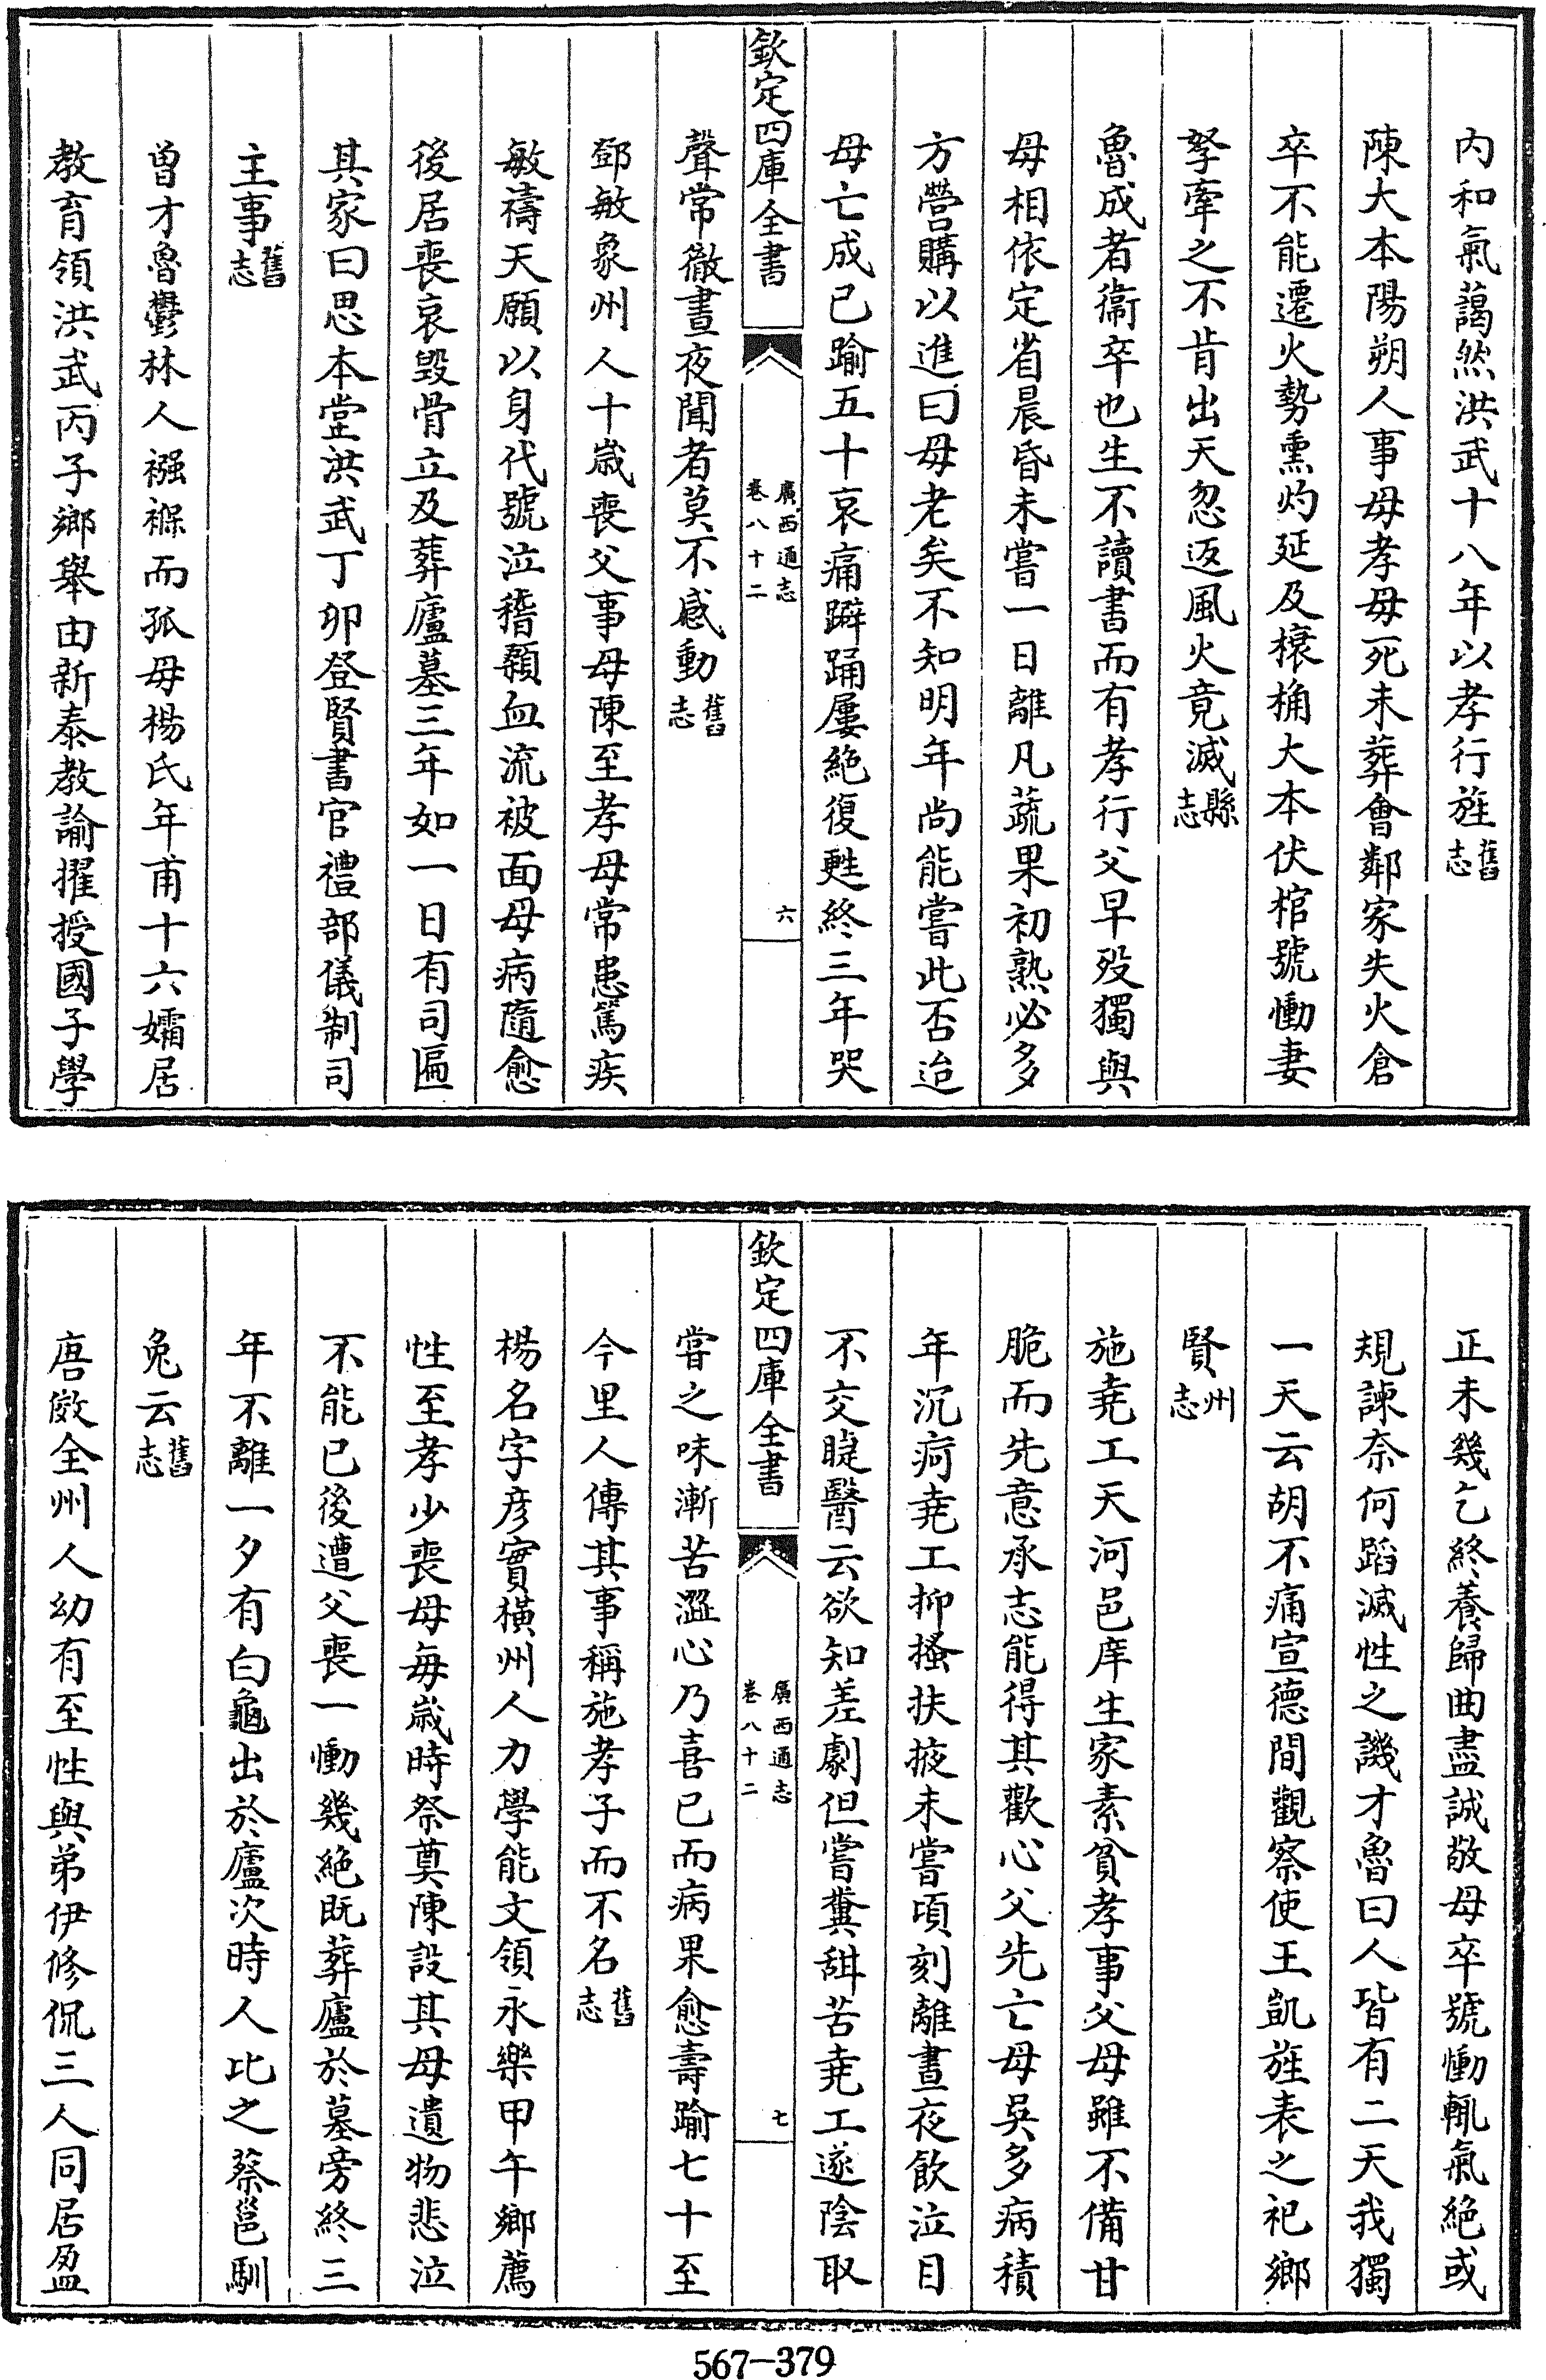 內和氣藹然洪武十八年以孝行旌舊志
陳大本陽朔人事母孝母死未葬會鄰家失火倉
卒不能遷火勢熏灼延及榱桷大本伏棺號慟妻
孥牽之不肯出天忽返風火竟滅縣志
魯成者衞卒也生不讀書而有孝行父早殁獨與
母相依定省晨昏未嘗一日離凡蔬果初熟必多
方營購以進曰母老矣不知明年尚能嘗此否迨
母亡成已踰五十哀痛躃踊屢絕復甦終三年哭
欽定四庫全書
廣西通志
卷八十二
六
聲常徹晝夜聞者莫不感動舊志
鄧敏象州人十歲喪父事母陳至孝母常患篤疾
敏禱天願以身代號泣稽顙血流被面母病隨愈
後居喪哀毀骨立及葬廬墓三年如一日有司匾
其家曰思本堂洪武丁卯登賢書官禮部儀制司
主事舊志
曾才魯鬱林人襁褓而孤母楊氏年甫十六孀居
教育領洪武丙子鄉舉由新泰教諭擢授國子學
正未幾乞終養歸曲盡誠敬母卒號慟輒氣絕或
規諫奈何蹈滅性之譏才魯曰人皆有二天我獨
一天云胡不痛宣德間觀察使王凱旌表之祀鄉
賢州志
施堯工天河邑庠生家素貧孝事父母雖不備甘
脆而先意承志能得其歡心父先亡母吳多病積
年沉疴堯工抑搔扶掖未嘗頃刻離晝夜飲泣目
不交睫醫云欲知差劇但嘗糞甜苦堯工遂陰取
欽定四庫全書
廣西通志
卷八十二
七
嘗之味漸苦澀心乃喜已而病果愈壽踰七十至
今里人傳其事稱施孝子而不名舊志
楊名字彦實橫州人力學能文領永樂甲午鄉薦
性至孝少喪母每歲時祭奠陳設其母遺物悲泣
不能已後遭父喪一慟幾絕既葬廬於墓旁終三
年不離一夕有白龜出於廬次時人比之蔡邕馴
兔云舊志
唐儆全州人幼有至性與弟伊修侃三人同居盈
567-379